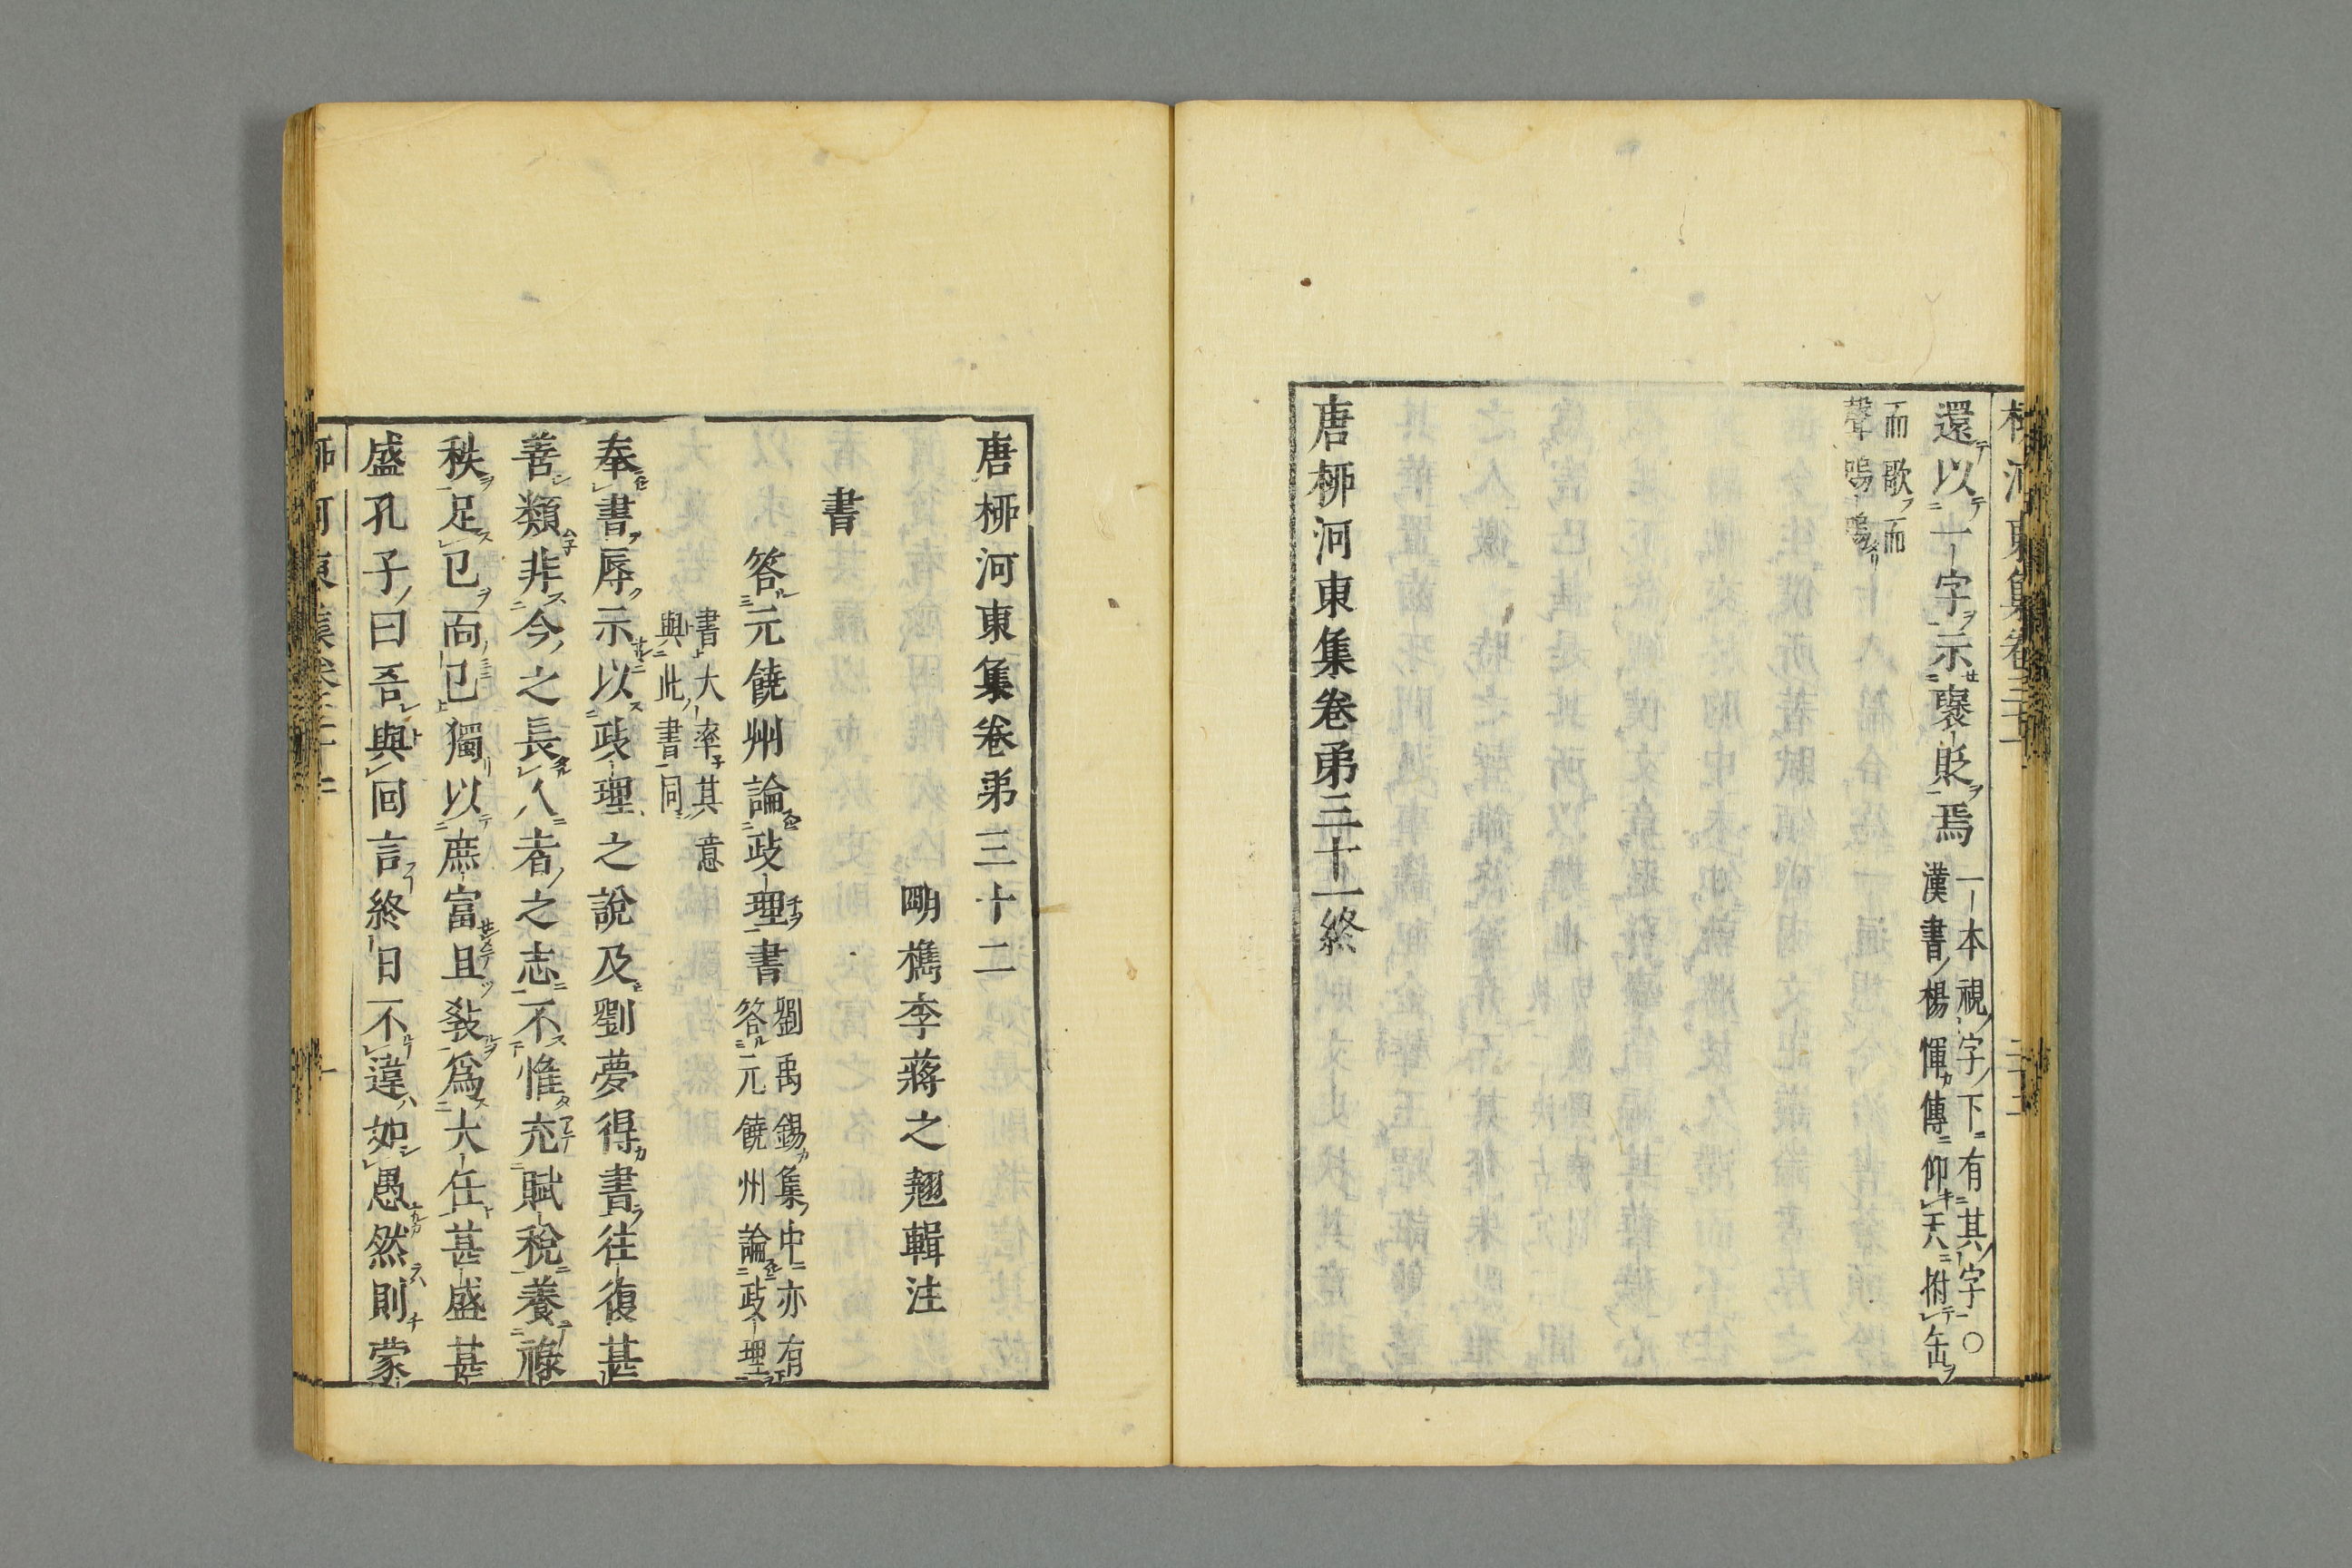 還以一字示襃貶焉
一本視字下有其字○
漢書楊惲傳仰天拊缶
而歌而
聲嗚嗚
唐栁河東集卷苐三十一終
唐栁河東集卷苐三十二
明檇李蔣之翹輯注
書
答元饒州論政理書
劉禹錫集中亦有
答元饒州論政理
書大率其意
與此書同
奉書辱示以政理之說及劉夢得書往復甚
善類非今之長人者之志不惟充賦稅養祿
秩足已而已獨以庶富且敎爲大任甚盛甚
盛孔子曰吾與回言終日不違如愚然則蒙